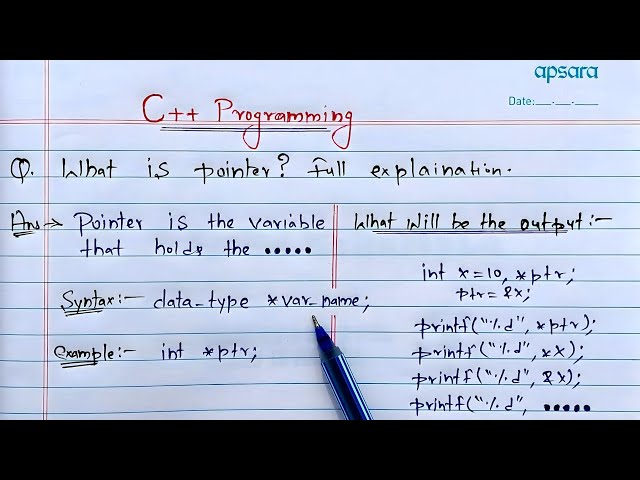 apsara
Date:__.__.__
C++ Programming
Q. What is pointer? Full explaination.
Ans → Pointer is the variable
that holds the •••••
Syntax:- data-type *var-name;
Example:- int *ptr;
What will be the output:-
int x=10, *ptr;
ptr=&x;
printf("%d", *ptr);
printf("%d", *x);
printf("%d", &x);
printf("%d", •••••